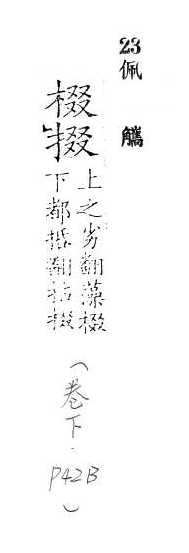 23佩觿
棳掇
上之劣翻藻棳
下都括翻拈掇
（卷下．P42B）